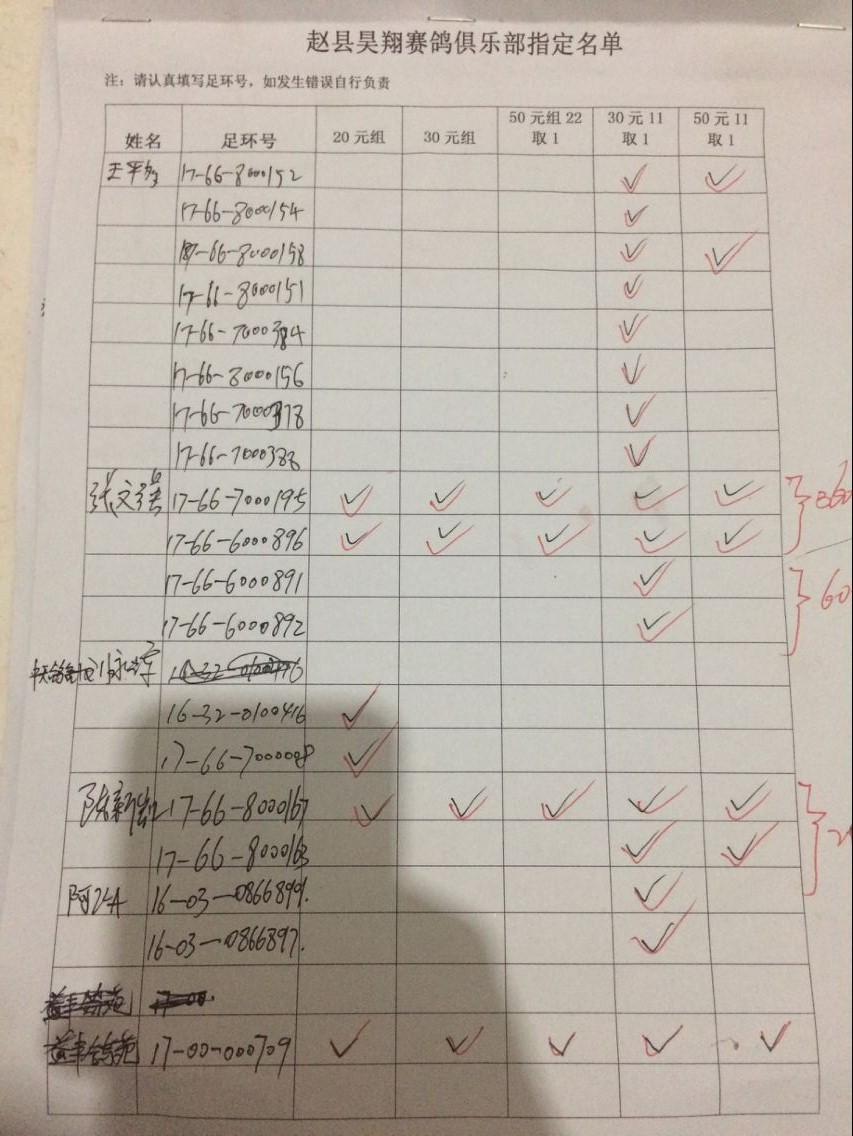 赵县昊翔赛鸽俱乐部指定名单
注：请认真填写足环号，如发生错误自行负责
姓名 足环号 20元组 30元组 50元组22取1 30元11取1 50元11取1
17-66-8000152 ✓ ✓
17-66-8000154 ✓
17-66-8000158 ✓ ✓
17-66-8000151 ✓
17-66-7000384 ✓
17-66-8000156 ✓
17-66-7000378 ✓
17-66-7000388 ✓
张文强 17-66-7000195 ✓ ✓ ✓ ✓ ✓ 360
17-66-6000896 ✓ ✓ ✓ ✓ ✓
17-66-6000891 ✓ 60
17-66-6000892 ✓
16-32-0100416 ✓
17-66-7000008 ✓
17-66-8000167 ✓ ✓ ✓ ✓ ✓
17-66-8000163 ✓ ✓
16-03-0866899. ✓
16-03-0866897. ✓
17-00-000709 ✓ ✓ ✓ ✓ ✓